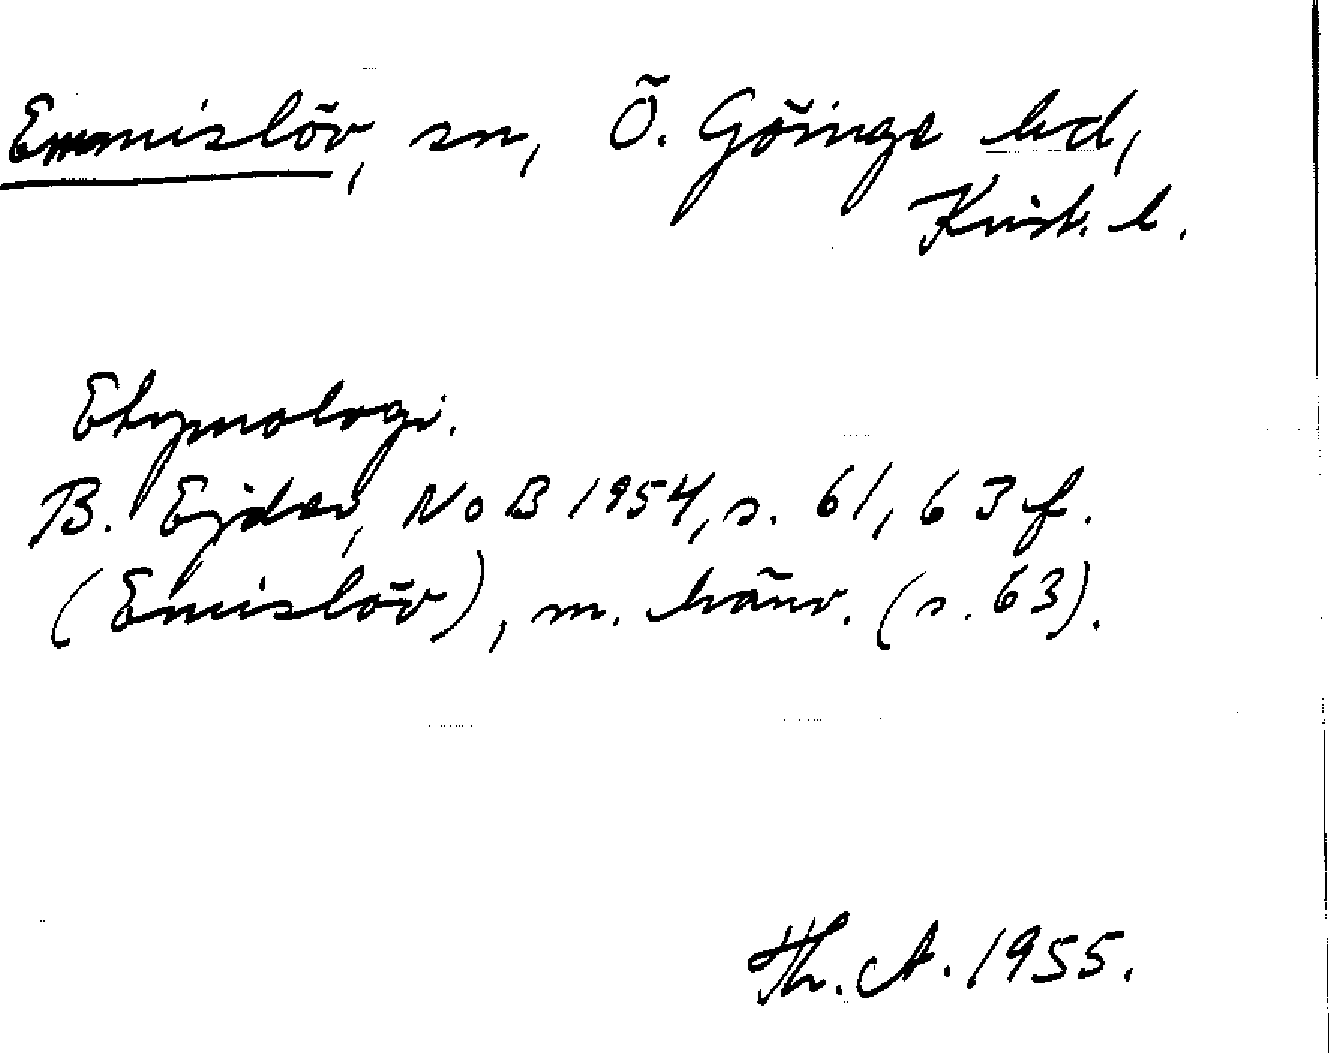 Emmislöv, sn, Ö. Göinge hd,
Krist. l.
Etymologi.
B. Ejder, NoB 1954, s. 61, 63 f.
(Emislöv), m. hänv. (s. 63).
Th. A. 1955.